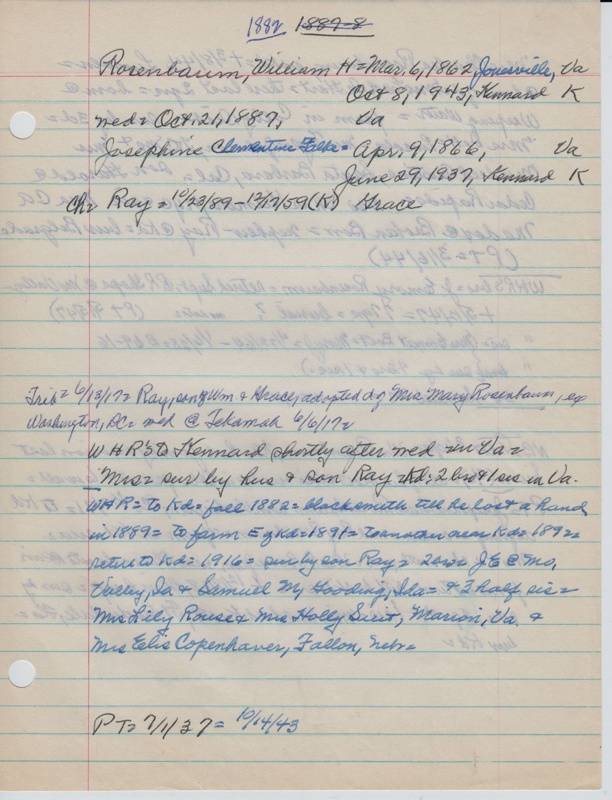 1882 1887-8
Rosenbaum, William H = Mar. 6, 1862, Jonesville, Va
Oct 8, 1943, Kennard K
med = Oct. 21, 1887, Va
Josephine Clementine Falke = Apr. 9, 1866, Va
June 29, 1937, Kennard K
Ch = Ray = 10/23/89 - 12/17/59 (K) Grace
Trib = 6/13/17 = Ray, son of Wm & Grace, adopted d of Mrs. Mary Rosenbaum, ex
Washington, DC = med @ Tekamah 6/6/17 =
W H R's to Kennard shortly after med in Va =
Mrs = sur by hus & son Ray = Kd: 2 bro & 1 sis in Va.
WHR = to Kd = fall 1882 = blacksmith till he lost a hand
in 1889 = to farm E of Kd = 1891 = to another near Kd = 1892 =
retire to Kd = 1916 = sur by son Ray = 2 bro = J E @ Mo.
Valley, Ia & Samuel M, Gooding, Ida = & 2 half sis =
Mrs Lily Rouse & Mrs Holly Suit, Marion, Va. &
Mrs Elis Copenhaver, Fallon, Neb =
P T = 7/1/37 = 10/14/43